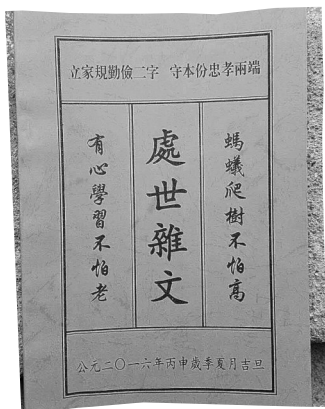 立家規勤儉二字 守份本忠孝兩端
螞蟻爬樹不怕高
處世雜文
有心學習不怕老
公元二〇一六年丙申歲季夏月吉旦